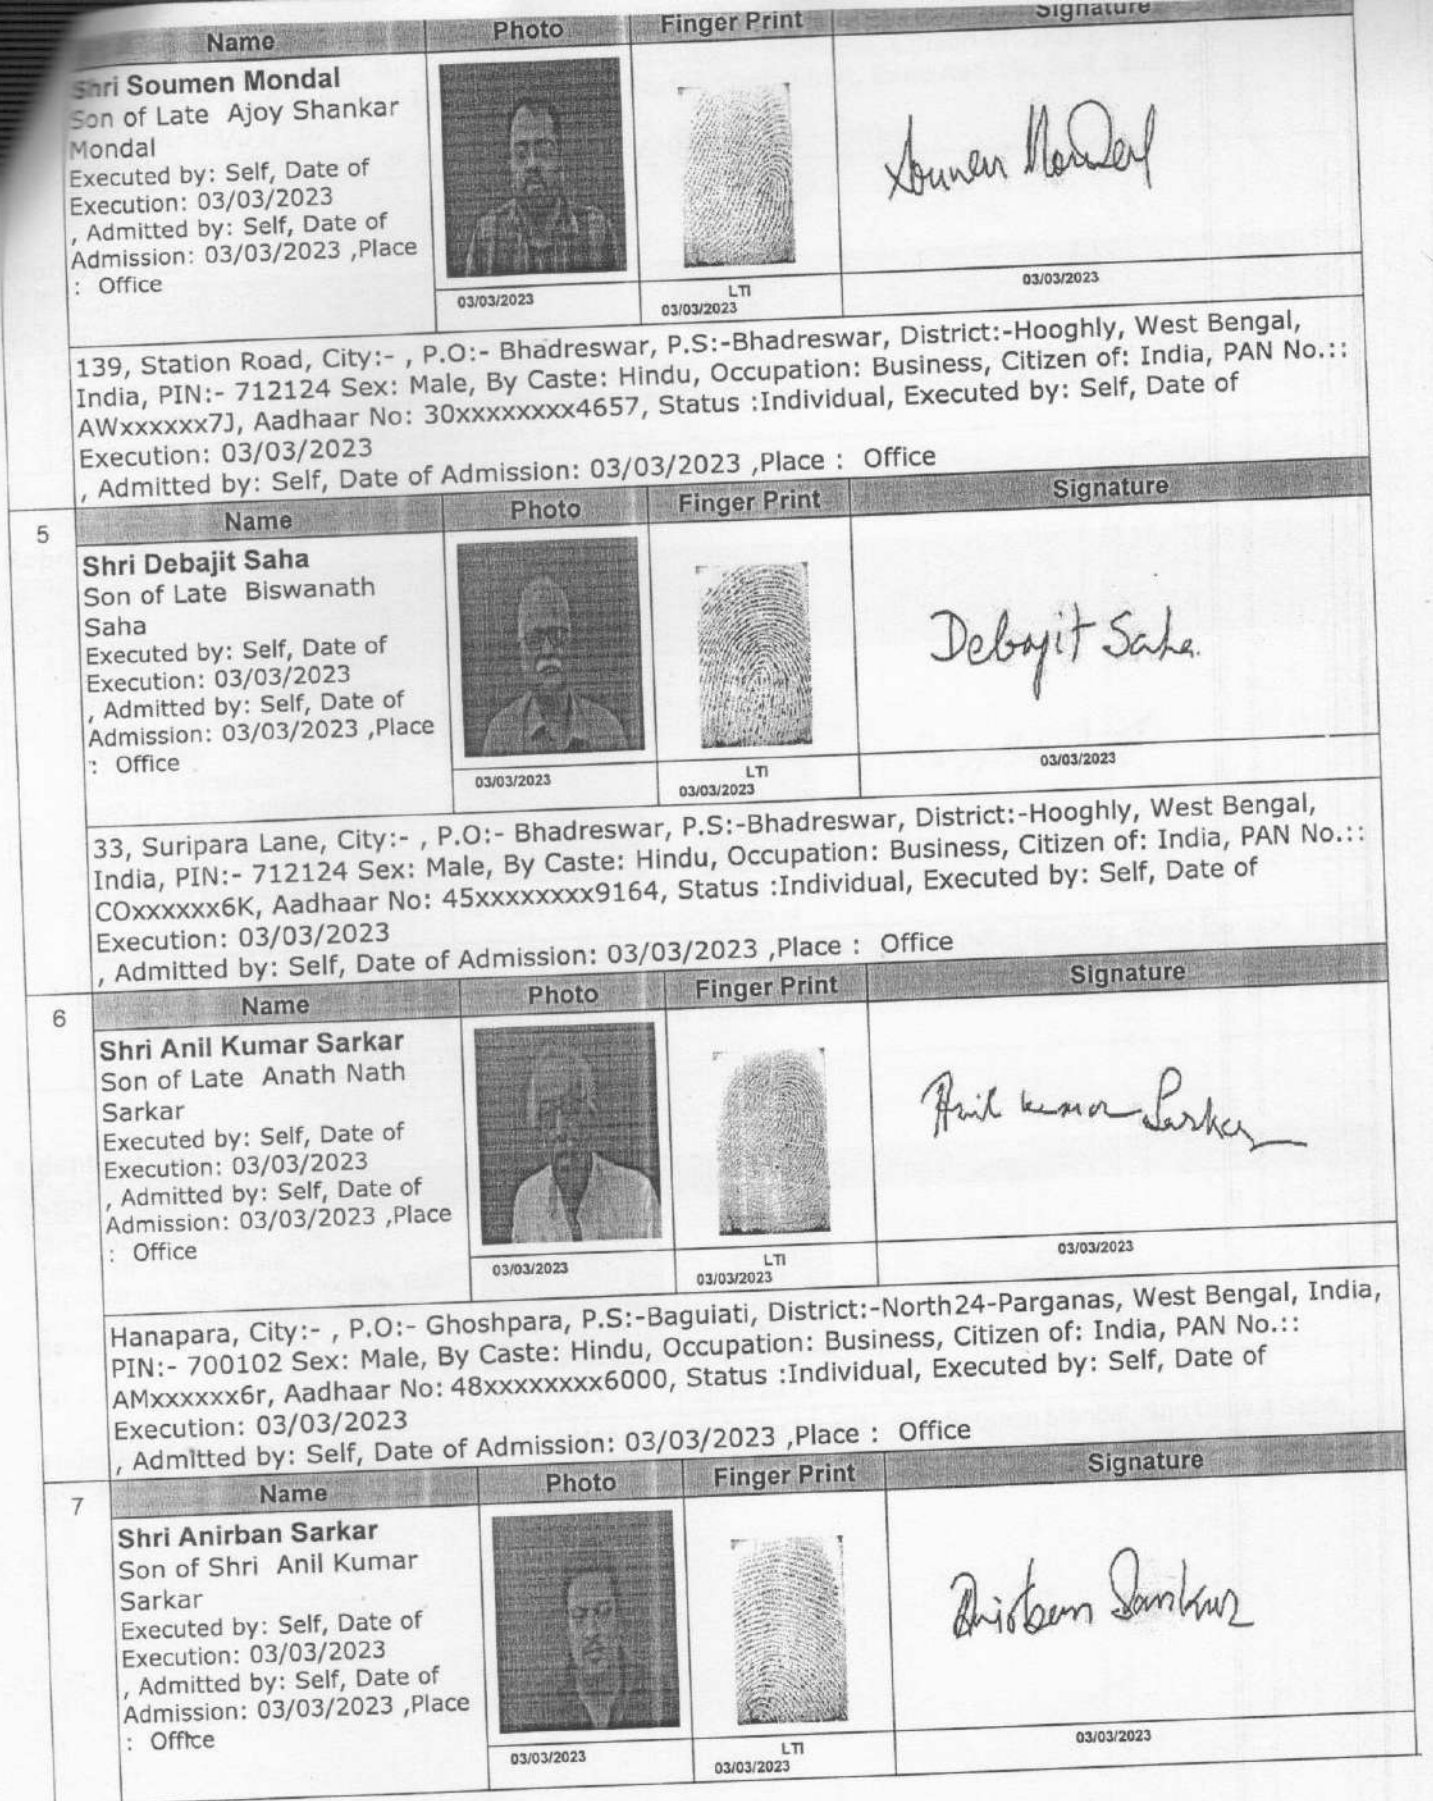 Name Photo Finger Print Signature
Shri Soumen Mondal
Son of Late Ajoy Shankar
Mondal
Executed by: Self, Date of
Execution: 03/03/2023
, Admitted by: Self, Date of
Admission: 03/03/2023 ,Place
: Office
Soumen Mondal
03/03/2023
LTI
03/03/2023
03/03/2023
139, Station Road, City:- , P.O:- Bhadreswar, P.S:-Bhadreswar, District:-Hooghly, West Bengal,
India, PIN:- 712124 Sex: Male, By Caste: Hindu, Occupation: Business, Citizen of: India, PAN No.::
AWxxxxxx7J, Aadhaar No: 30xxxxxxxx4657, Status :Individual, Executed by: Self, Date of
Execution: 03/03/2023
, Admitted by: Self, Date of Admission: 03/03/2023 ,Place : Office
5 Name Photo Finger Print Signature
Shri Debajit Saha
Son of Late Biswanath
Saha
Executed by: Self, Date of
Execution: 03/03/2023
, Admitted by: Self, Date of
Admission: 03/03/2023 ,Place
: Office
Debajit Saha.
03/03/2023
LTI
03/03/2023
03/03/2023
33, Suripara Lane, City:- , P.O:- Bhadreswar, P.S:-Bhadreswar, District:-Hooghly, West Bengal,
India, PIN:- 712124 Sex: Male, By Caste: Hindu, Occupation: Business, Citizen of: India, PAN No.::
COxxxxxx6K, Aadhaar No: 45xxxxxxxx9164, Status :Individual, Executed by: Self, Date of
Execution: 03/03/2023
, Admitted by: Self, Date of Admission: 03/03/2023 ,Place : Office
6 Name Photo Finger Print Signature
Shri Anil Kumar Sarkar
Son of Late Anath Nath
Sarkar
Executed by: Self, Date of
Execution: 03/03/2023
, Admitted by: Self, Date of
Admission: 03/03/2023 ,Place
: Office
Anil kumar Sarkar
03/03/2023
LTI
03/03/2023
03/03/2023
Hanapara, City:- , P.O:- Ghoshpara, P.S:-Baguiati, District:-North24-Parganas, West Bengal, India,
PIN:- 700102 Sex: Male, By Caste: Hindu, Occupation: Business, Citizen of: India, PAN No.::
AMxxxxxx6r, Aadhaar No: 48xxxxxxxx6000, Status :Individual, Executed by: Self, Date of
Execution: 03/03/2023
, Admitted by: Self, Date of Admission: 03/03/2023 ,Place : Office
7 Name Photo Finger Print Signature
Shri Anirban Sarkar
Son of Shri Anil Kumar
Sarkar
Executed by: Self, Date of
Execution: 03/03/2023
, Admitted by: Self, Date of
Admission: 03/03/2023 ,Place
: Office
Anirban Sarkar
03/03/2023
LTI
03/03/2023
03/03/2023